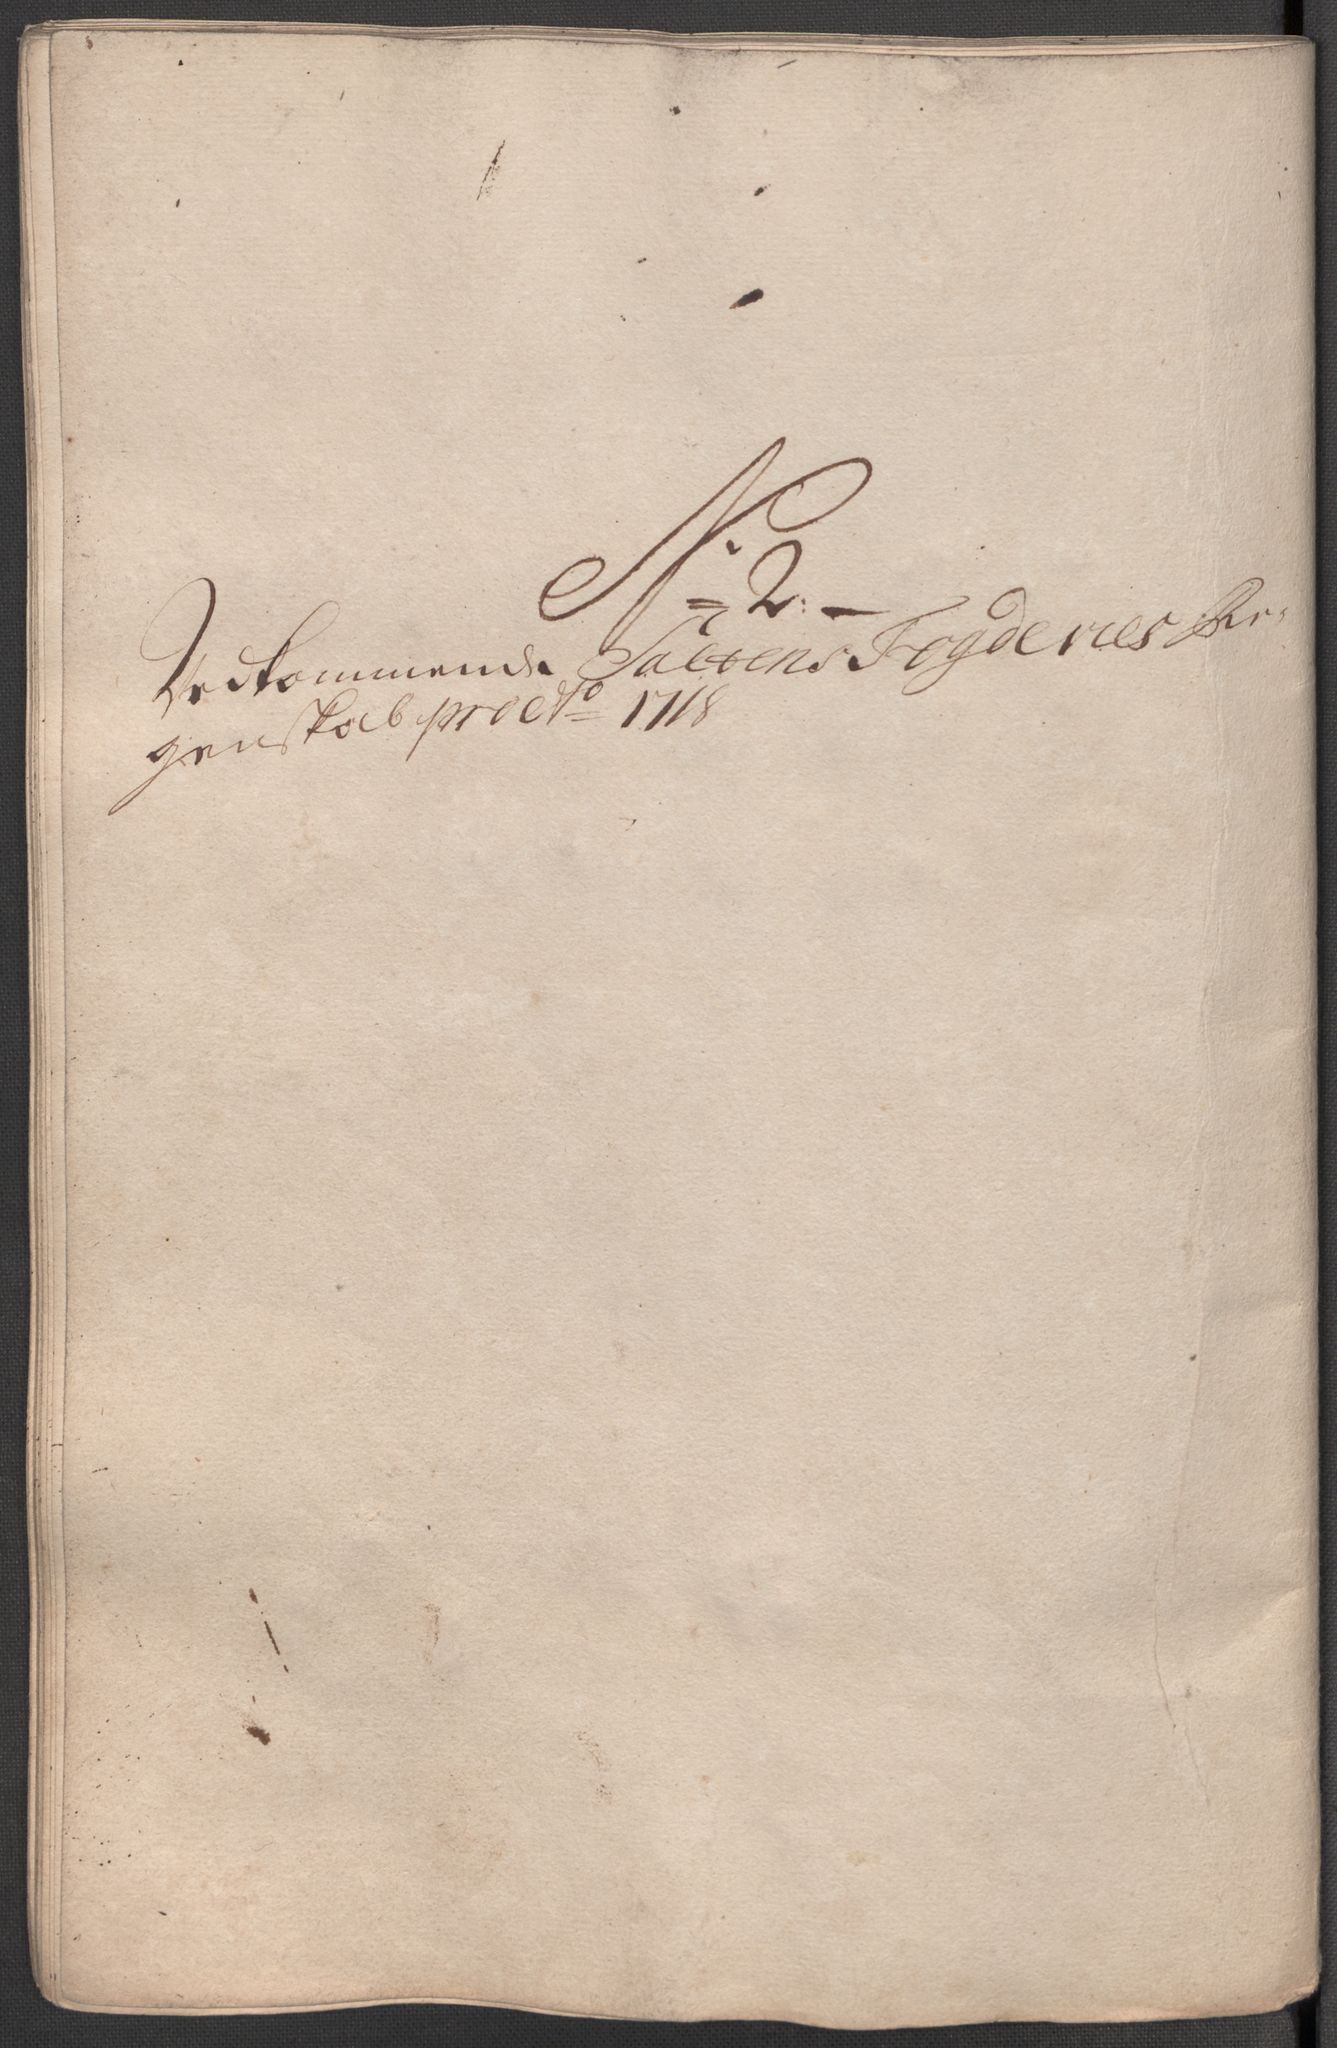 N: 2:
Vedkommende Saltens Fogderies Re-
genskab pro Ao 1718